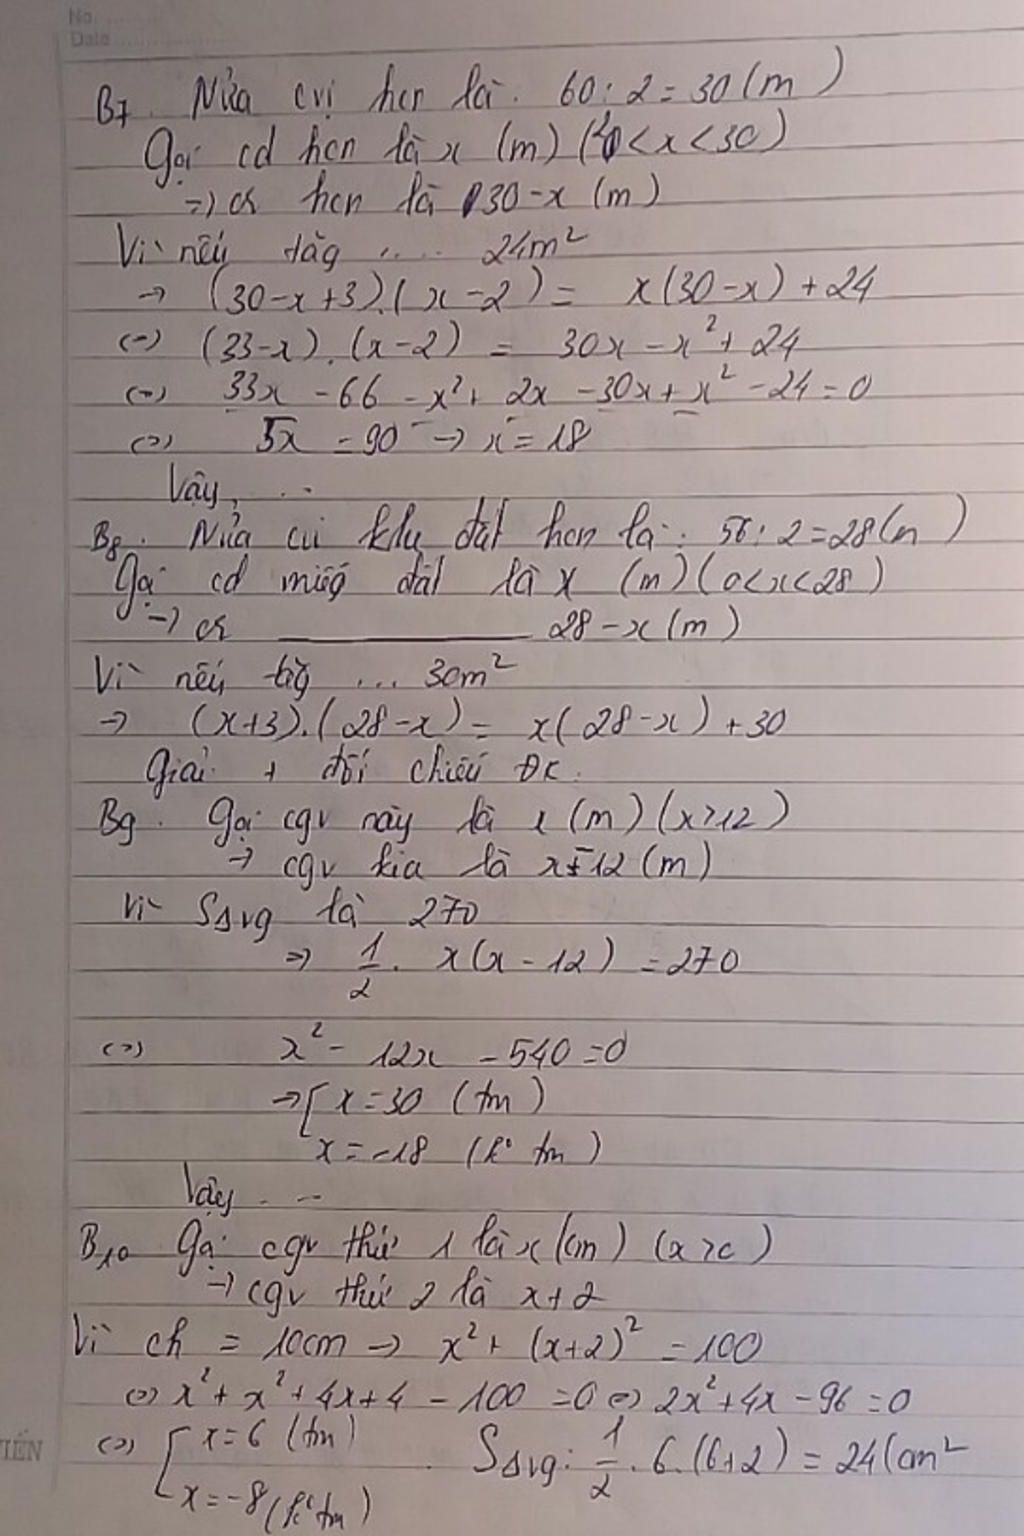 No.
Date
B7. Nửa cvi hcn là: 60 : 2 = 30 (m)
Gọi cd hcn là x (m) (0 < x < 30)
=> cr hcn là 30 - x (m)
Vì nếu tăg .... 24m²
→ (30 - x + 3).(x - 2) = x(30 - x) + 24
(=) (33 - x).(x - 2) = 30x - x² + 24
(=) 33x - 66 - x² + 2x - 30x + x² - 24 = 0
(=) 5x = 90 → x = 18
Vậy, ...
B8. Nửa cvi khu đất hcn là: 56 : 2 = 28 (m)
Gọi cd miếg đất là x (m) (0 < x < 28)
→ cr ______ 28 - x (m)
Vì nếu tăg ... 30m²
→ (x + 3).(28 - x) = x(28 - x) + 30
Giải + đối chiếu ĐK.
B9. Gọi cgv này là x (m) (x > 12)
→ cgv kia là x - 12 (m)
Vì SΔvg là 270
=> 1/2 . x(x - 12) = 270
(=) x² - 12x - 540 = 0
→ [ x = 30 (tm)
x = -18 (k° tm)
Vậy ...
B10 Gọi cgv thứ 1 là x (cm) (x > 0)
→ cgv thứ 2 là x + 2
Vì ch = 10cm → x² + (x + 2)² = 100
(=) x² + x² + 4x + 4 - 100 = 0 (=) 2x² + 4x - 96 = 0
(=) [ x = 6 (tm) . SΔvg: 1/2 . 6.(6 + 2) = 24 (cm²
x = -8 (k° tm)
TIẾN